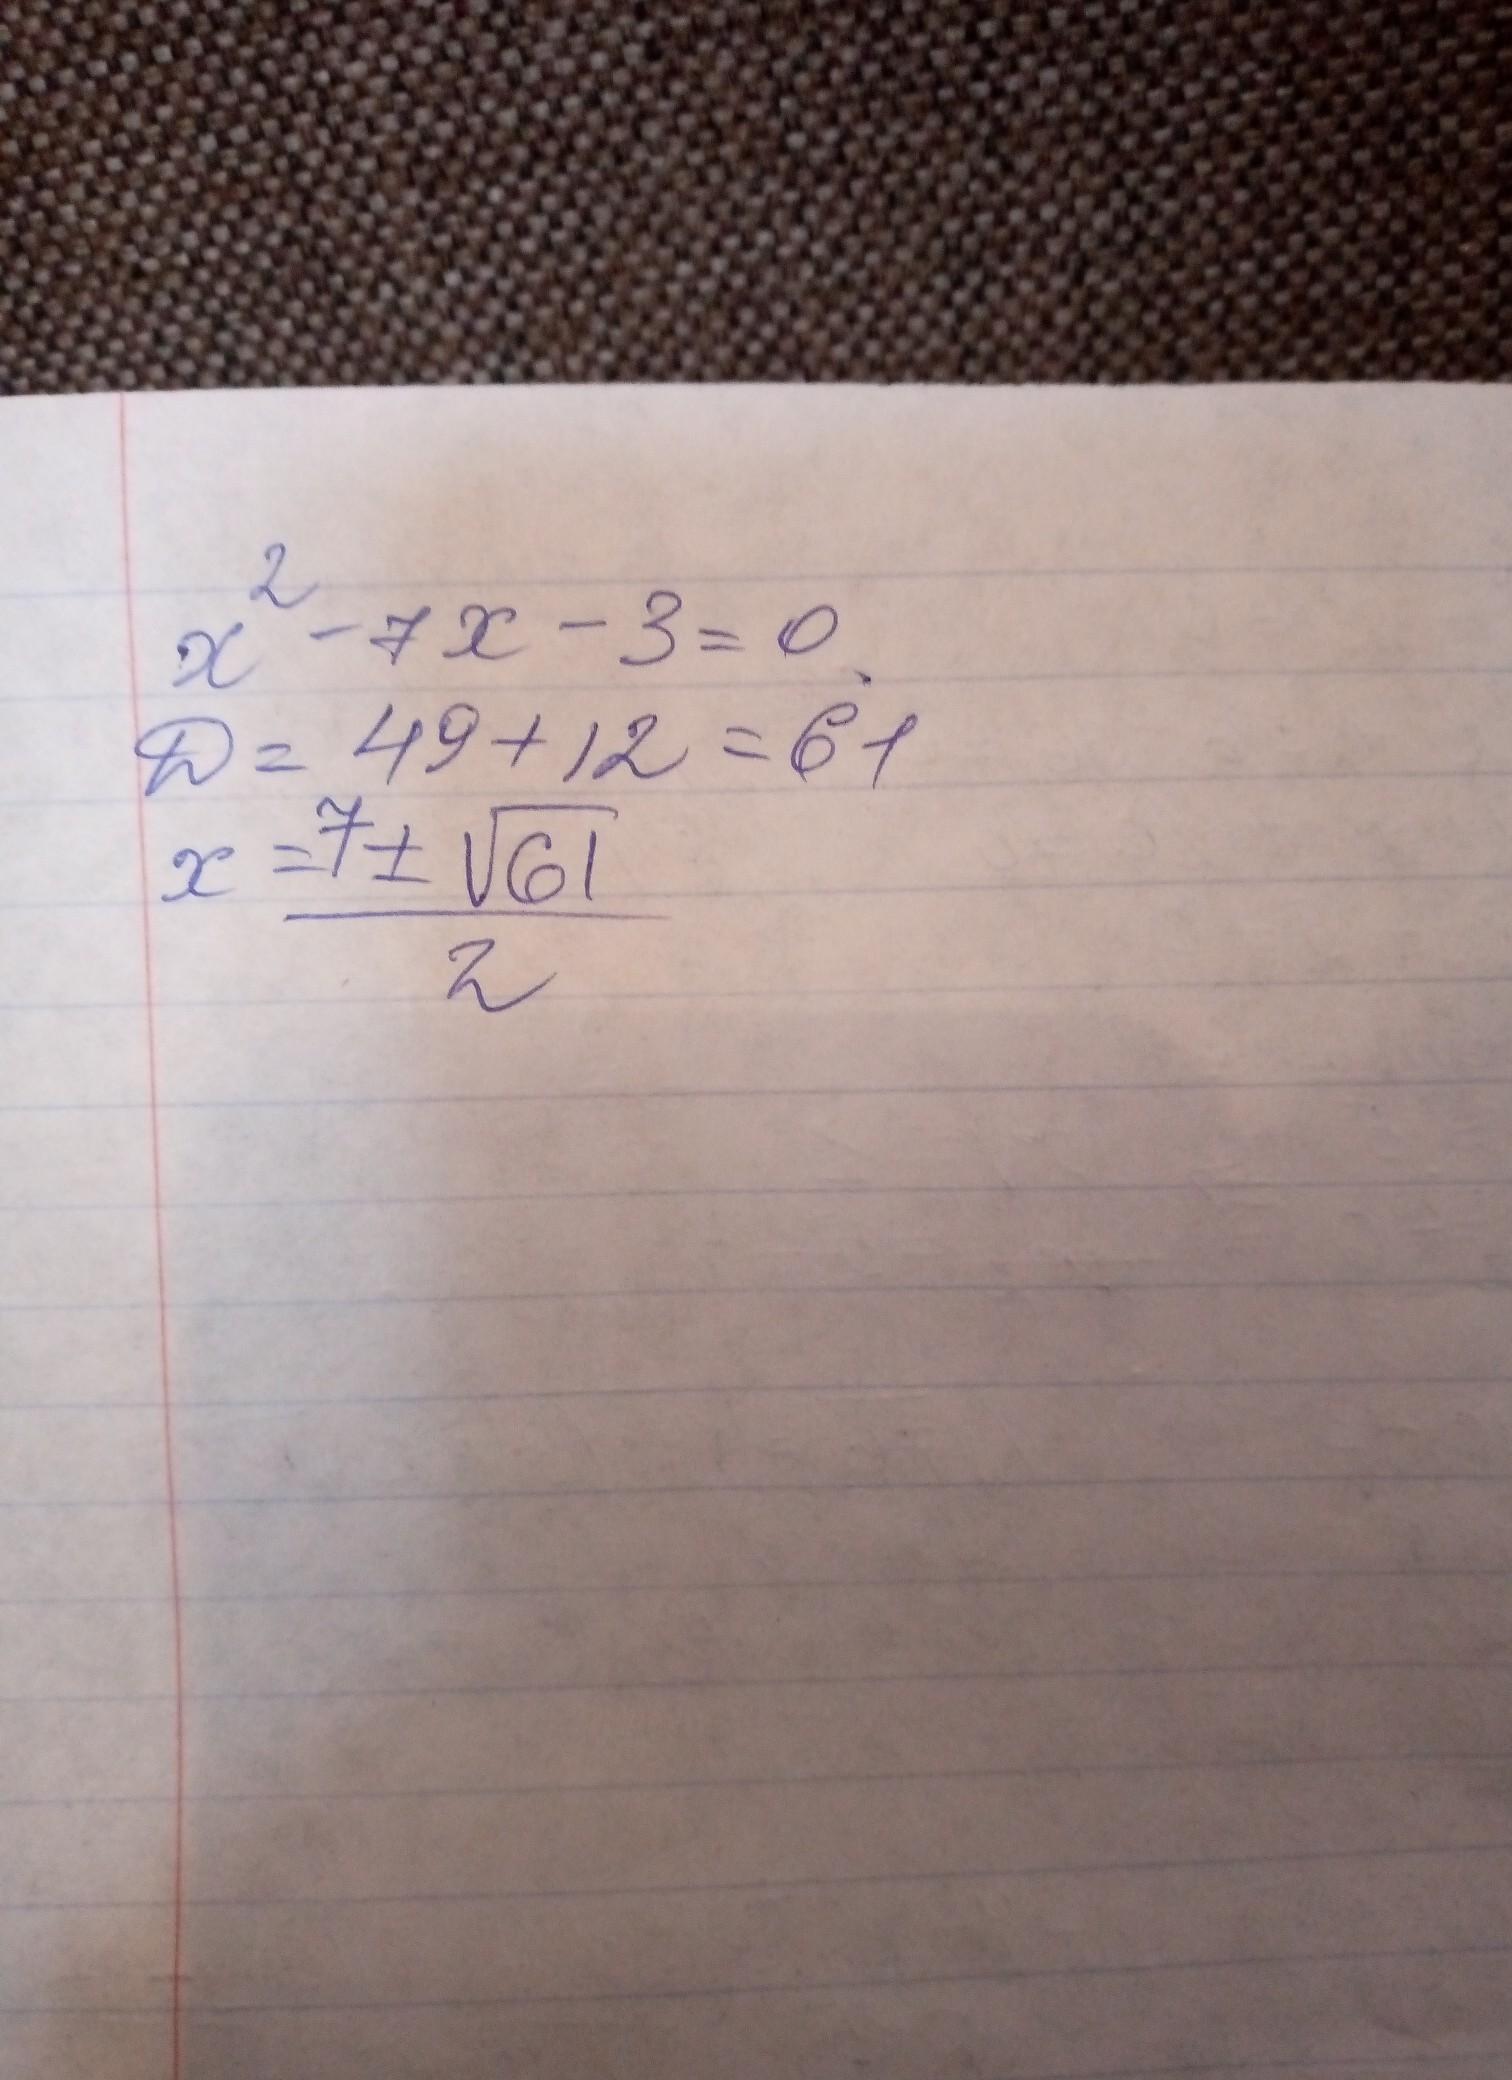 x² - 7x - 3 = 0
D = 49 + 12 = 61
x = 7 ± √61
2